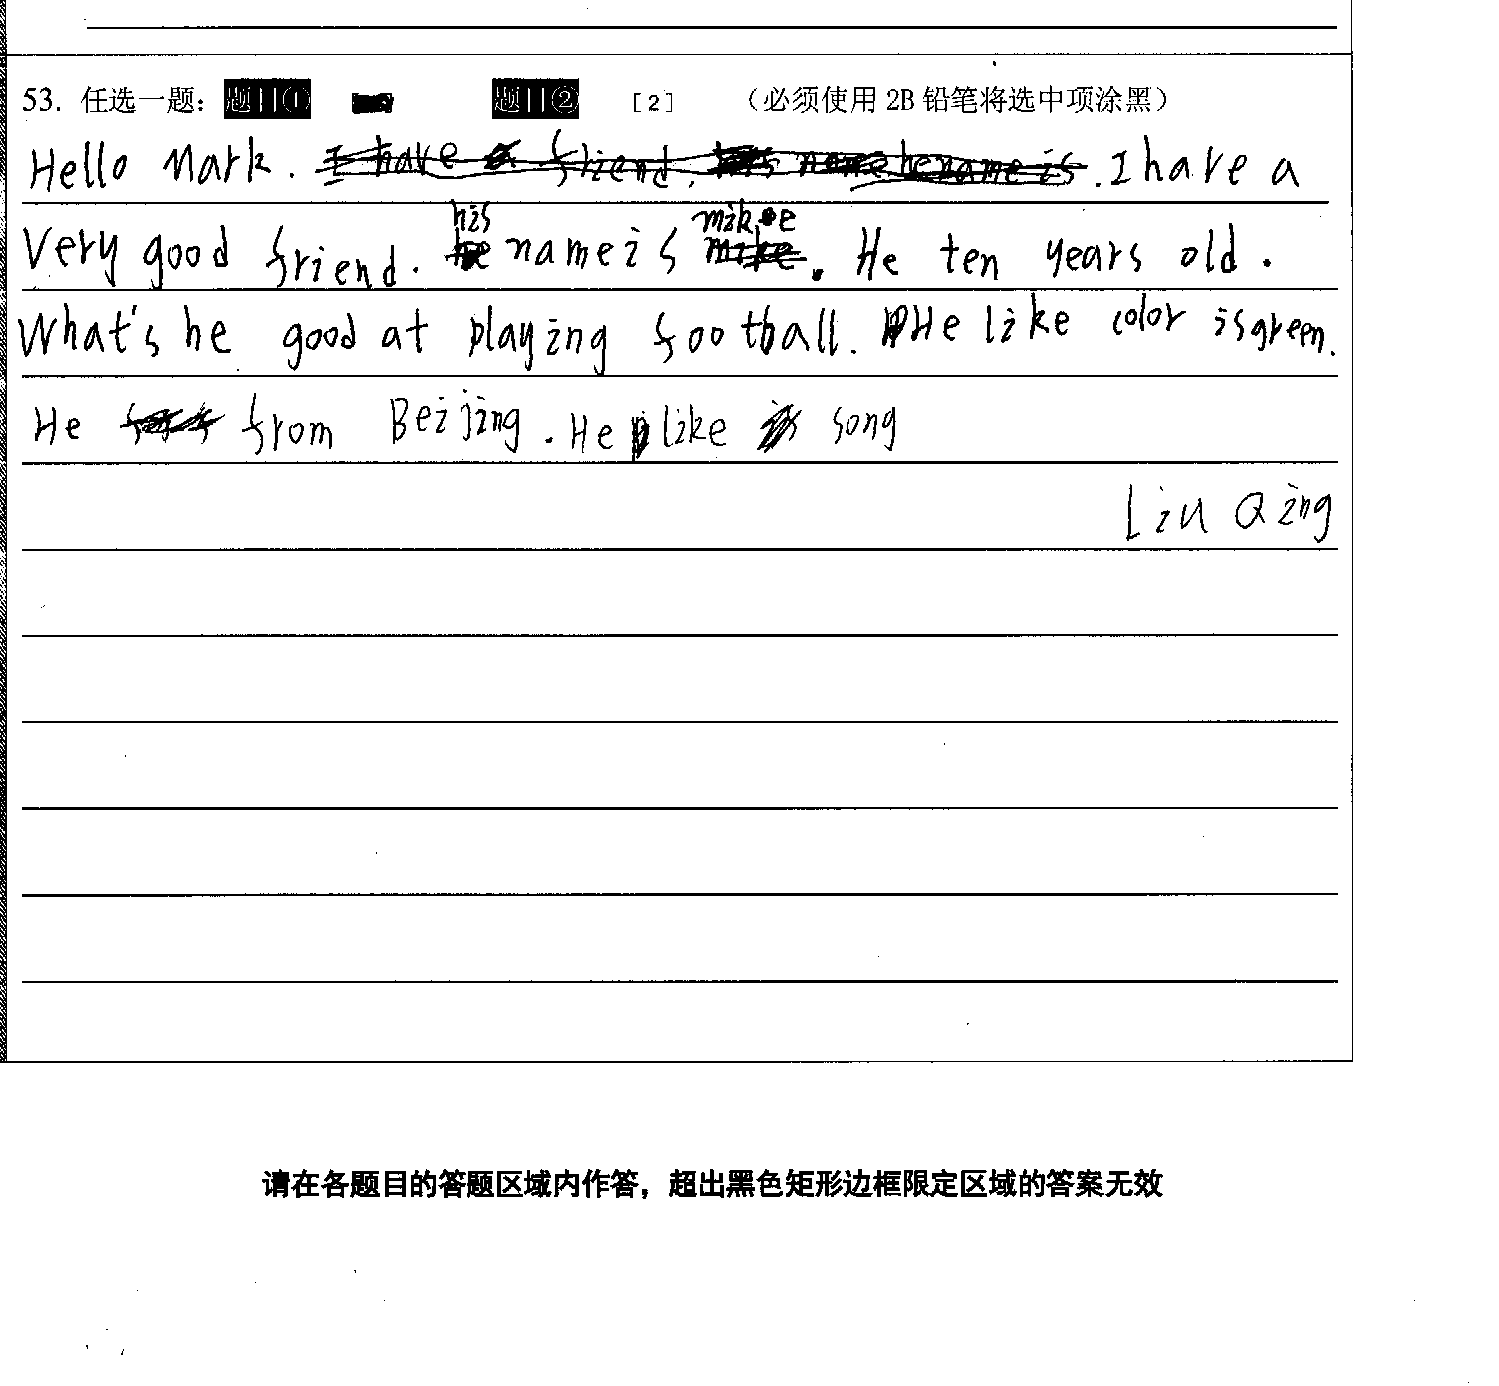 53. 任选一题: 题目① 题目② [2] (必须使用 2B 铅笔将选中项涂黑)
Hello Mark. I have a friend. he name is. I have a
his mike
Very good friend. he name is mike. He ten years old.
What's he good at playing football. He like color is green.
He from Beijing. He like song
Liu Qing
请在各题目的答题区域内作答，超出黑色矩形边框限定区域的答案无效